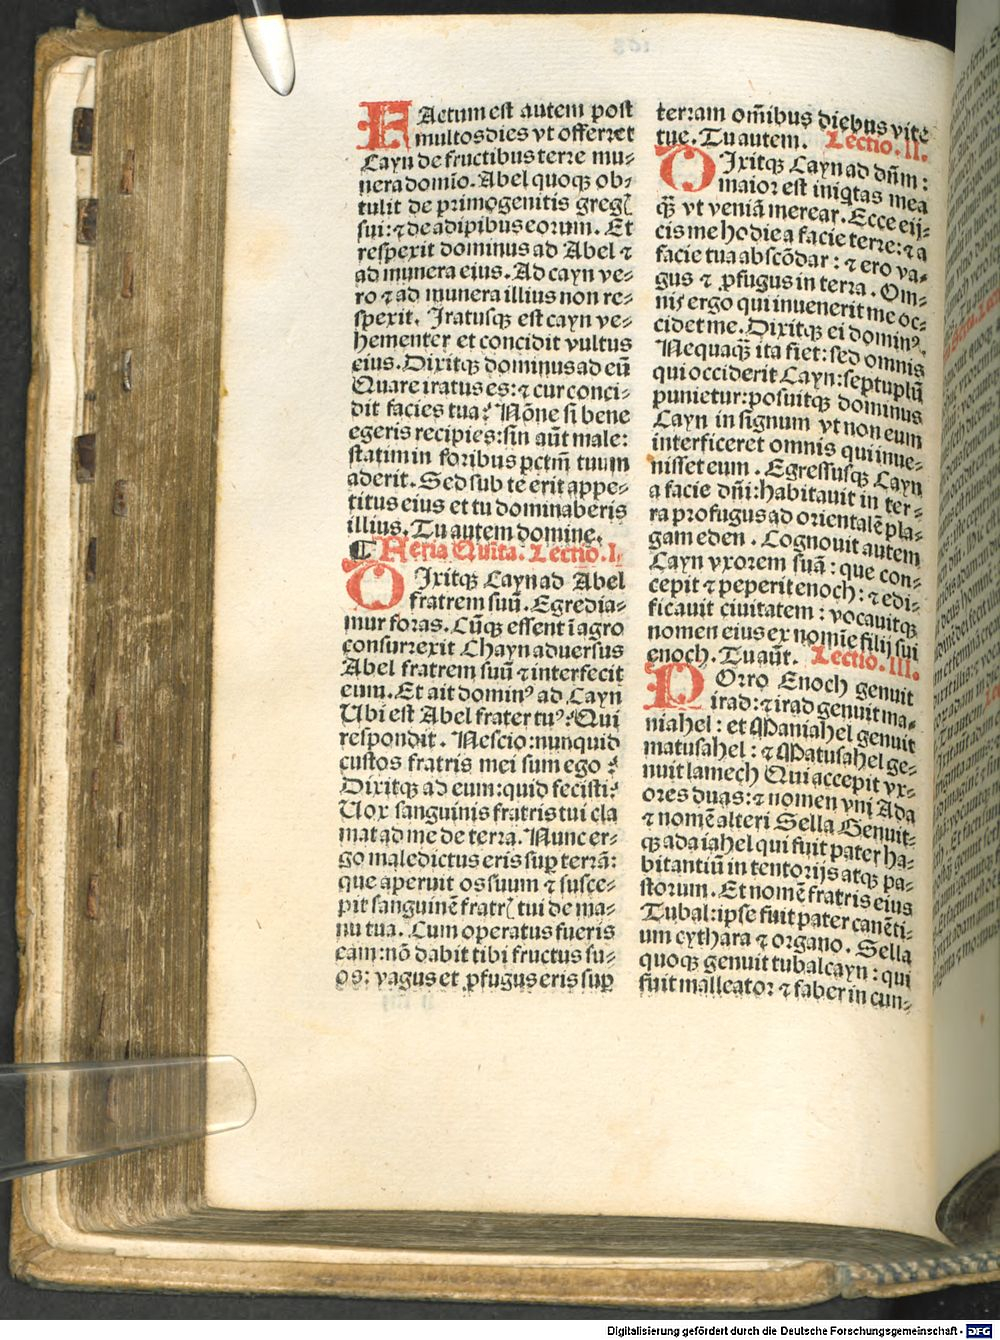 FActum est autem post
multos dies vt offerret
Cayn de fructibus terre mu⸗
nera domīo. Abel quoqꝫ ob⸗
tulit de primogenitis gregꝭ
sui: ⁊ de adipibus eorum. Et
respexit dominus ad Abel ⁊
ad munera eius. Ad cayn ve⸗
ro ⁊ ad munera illius non re⸗
spexit. Iratusqꝫ est cayn ve⸗
hementer et concidit vultus
eius. Dixitqꝫ dominus ad eū
Quare iratus es: ⁊ cur conci⸗
dit facies tua? Nōne si bene
egeris recipies: sin aūt male:
statim in foribus pctm̄ tuum
aderit. Sed sub te erit appe⸗
titus eius et tu dominaberis
illius. Tu autem domine.
¶ Feria Quīta. Lectio. I.
DIxitqꝫ Cayn ad Abel
fratrem suū. Egredia⸗
mur foras. Cūqꝫ essent ī agro
consurrexit Chayn aduersus
Abel fratrem suū ⁊ interfecit
eum. Et ait dominꝰ ad Cayn
Ubi est Abel frater tuꝰ? Qui
respondit. Nescio: nunquid
custos fratris mei sum ego?
Dixitqꝫ ad eum: quid fecisti?
Uox sanguinis fratris tui cla
mat ad me de terra. Nunc er⸗
go maledictus eris suꝑ terrā:
que aperuit os suum ⁊ susce⸗
pit sanguinē fratrꝭ tui de ma⸗
nu tua. Cum operatus fueris
eam: nō dabit tibi fructus su⸗
os: vagus et ꝓfugus eris suꝑ
terram om̄ibus diebus vite
tue. Tu autem. Lectio. II.
DIxitqꝫ Cayn ad dn̄m:
maior est iniqtas mea
qꝫ̄ vt veniā merear. Ecce eij⸗
cis me hodie a facie terre: ⁊ a
facie tua abscōdar: ⁊ ero va⸗
gus ⁊ ꝓfugus in terra. Om⸗
nis ergo qui inuenerit me oc⸗
cidet me. Dixitqꝫ ei dominꝰ.
Nequaqꝫ̄ ita fiet: sed omnis
qui occiderit Cayn: septuplū
punietur: posuitqꝫ dominus
Cayn in signum vt non eum
interficeret omnis qui inue⸗
nisset eum. Egressusqꝫ Cayn
a facie dn̄i: habitauit in ter⸗
ra profugus ad orientalē pla⸗
gam eden. Cognouit autem
Cayn vxorem suā: que con⸗
cepit ⁊ peperit enoch: ⁊ edi⸗
ficauit ciuitatem: vocauitqꝫ
nomen eius ex nomīe filij sui
enoch. Tu aūt. Lectio. III.
POrro Enoch genuit
irad: ⁊ irad genuit ma⸗
niahel: et Maniahel genuit
matusahel: ⁊ Matusahel ge⸗
nuit lamech Qui accepit vx⸗
ores duas: ⁊ nomen vni Ada
⁊ nomē alteri Sella Genuit⸗
qꝫ ada iahel qui fuit pater ha⸗
bitantiū in tentorijs atqꝫ pa⸗
storum. Et nomē fratris eius
Tubal: ipse fuit pater canēti⸗
um cythara ⁊ organo. Sella
quoqꝫ genuit tubalcayn: qui
fuit malleator ⁊ faber in cun⸗
Digitalisierung gefördert durch die Deutsche Forschungsgemeinschaft - DFG